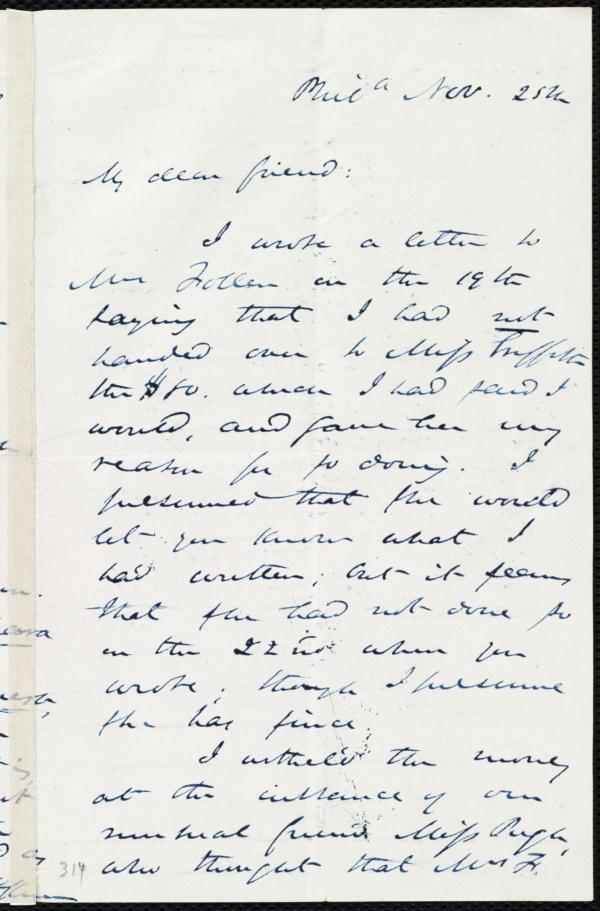 Phila Nov. 25th
My dear friend:
I wrote a letter to
Mrs Follen on the 19th
saying that I had not
handed over to Miss Griffith
the $80. which I had said I
would, and gave her my
reason for so doing. I
presumed that she would
let you know what I
had written; but it seems
that she had not done so
on the 22nd when you
wrote; though I presume
she has since.
I withheld the money
at the instance of our
mutual friend Miss Pugh
who thought that Mrs F.
314